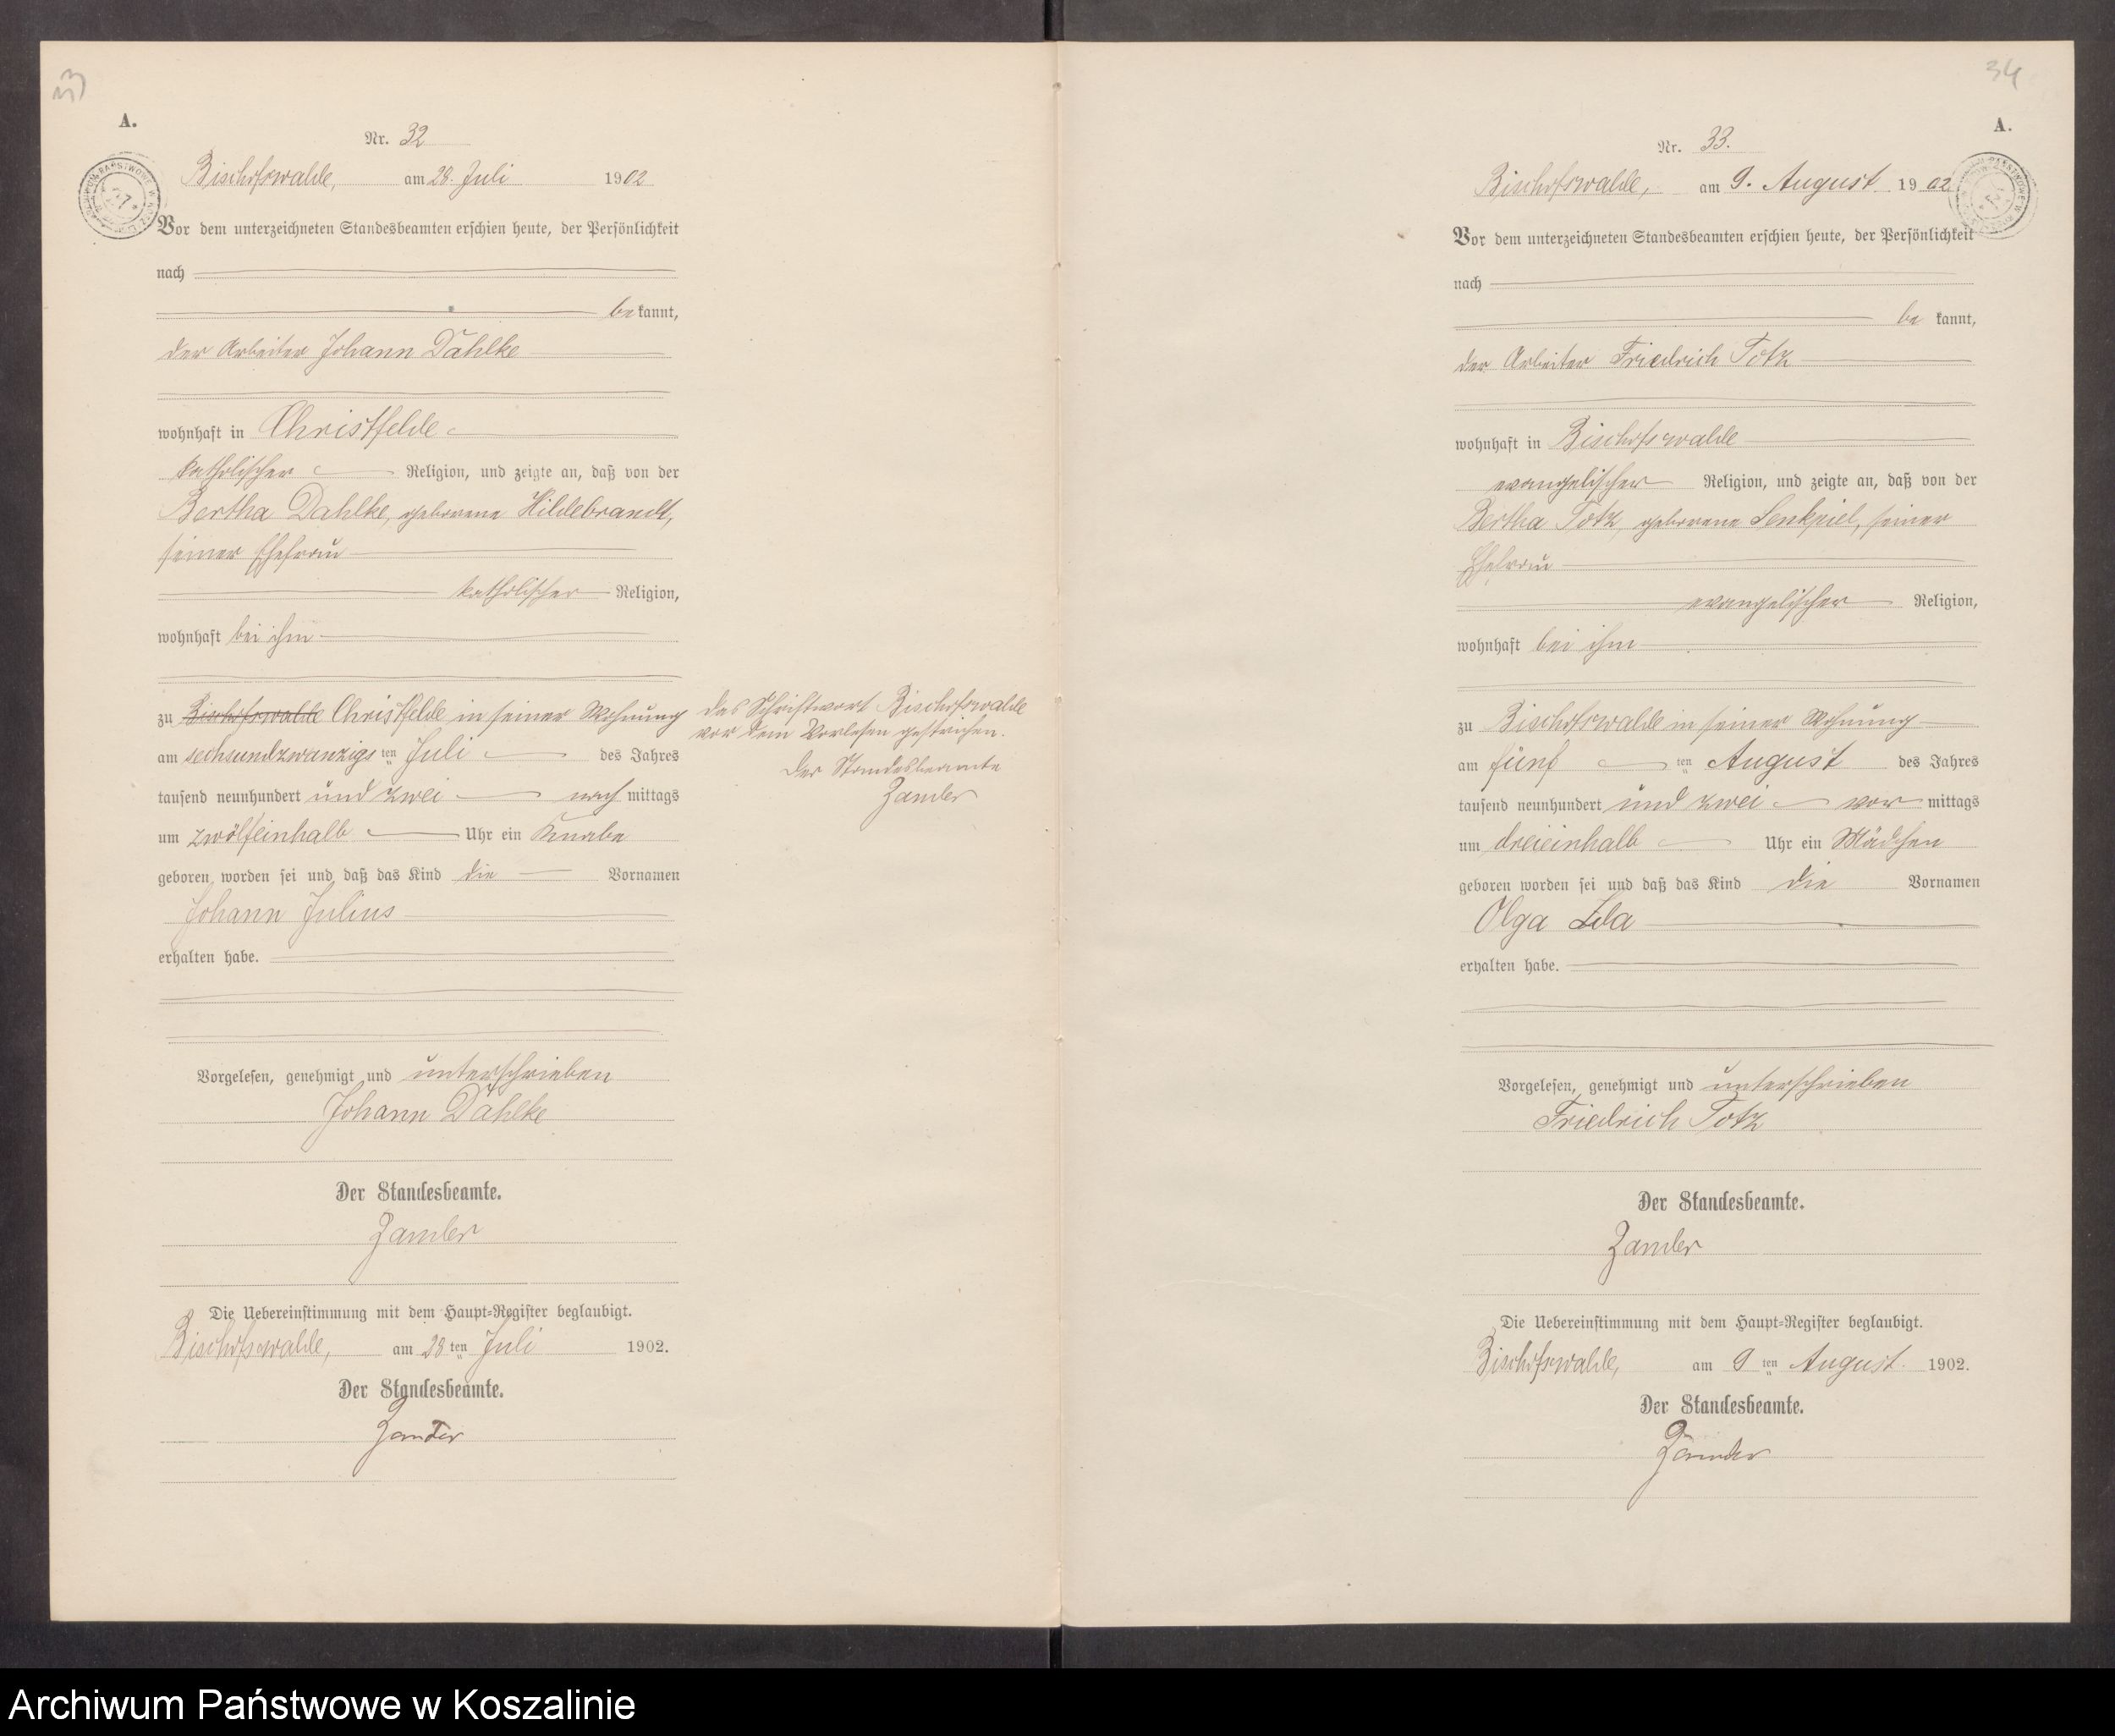 33
A.
Nr. 32
Bischofswalde, am 28. Juli 1902
Vor dem unterzeichneten Standesbeamten erschien heute, der Persönlichkeit
nach
be kannt,
der Arbeiter Johann Dahlke
wohnhaft in Christfelde
katholischer Religion, und zeigte an, daß von der
Bertha Dahlke, geborene Hildebrandt,
seiner Ehefrau
katholischer Religion,
wohnhaft bei ihm
zu Bischofswalde Christfelde in seiner Wohnung
am sechsundzwanzigs ten Juli des Jahres
tausend neunhundert und zwei nach mittags
um zwölfeinhalb Uhr ein Knabe
geboren worden sei und daß das Kind die Vornamen
Johann Julius
erhalten habe.
Vorgelesen, genehmigt und unterschrieben
Johann Dahlke
Der Standesbeamte.
Zander
Die Uebereinstimmung mit dem Haupt-Register beglaubigt.
Bischofswalde, am 28 ten Juli 1902.
Der Standesbeamte.
Zander
das Schriftwort Bischofswalde
vor dem Vorlesen gestrichen.
Der Standesbeamte
Zander
34
A.
Nr. 33.
Bischofswalde, am 9. August 1902
Vor dem unterzeichneten Standesbeamten erschien heute, der Persönlichkeit
nach
be kannt,
der Arbeiter Friedrich Totz
wohnhaft in Bischofswalde
evangelischer Religion, und zeigte an, daß von der
Bertha Totz, geborene Senkpiel, seiner
Ehefrau
evangelischer Religion,
wohnhaft bei ihm
zu Bischofswalde in seiner Wohnung
am fünf ten August des Jahres
tausend neunhundert und zwei vor mittags
um dreieinhalb Uhr ein Mädchen
geboren worden sei und daß das Kind die Vornamen
Olga
erhalten habe.
Vorgelesen, genehmigt und unterschrieben
Friedrich Totz
Der Standesbeamte.
Zander
Die Uebereinstimmung mit dem Haupt-Register beglaubigt.
Bischofswalde, am 9 ten August 1902.
Der Standesbeamte.
Zander
Archiwum Państwowe w Koszalinie